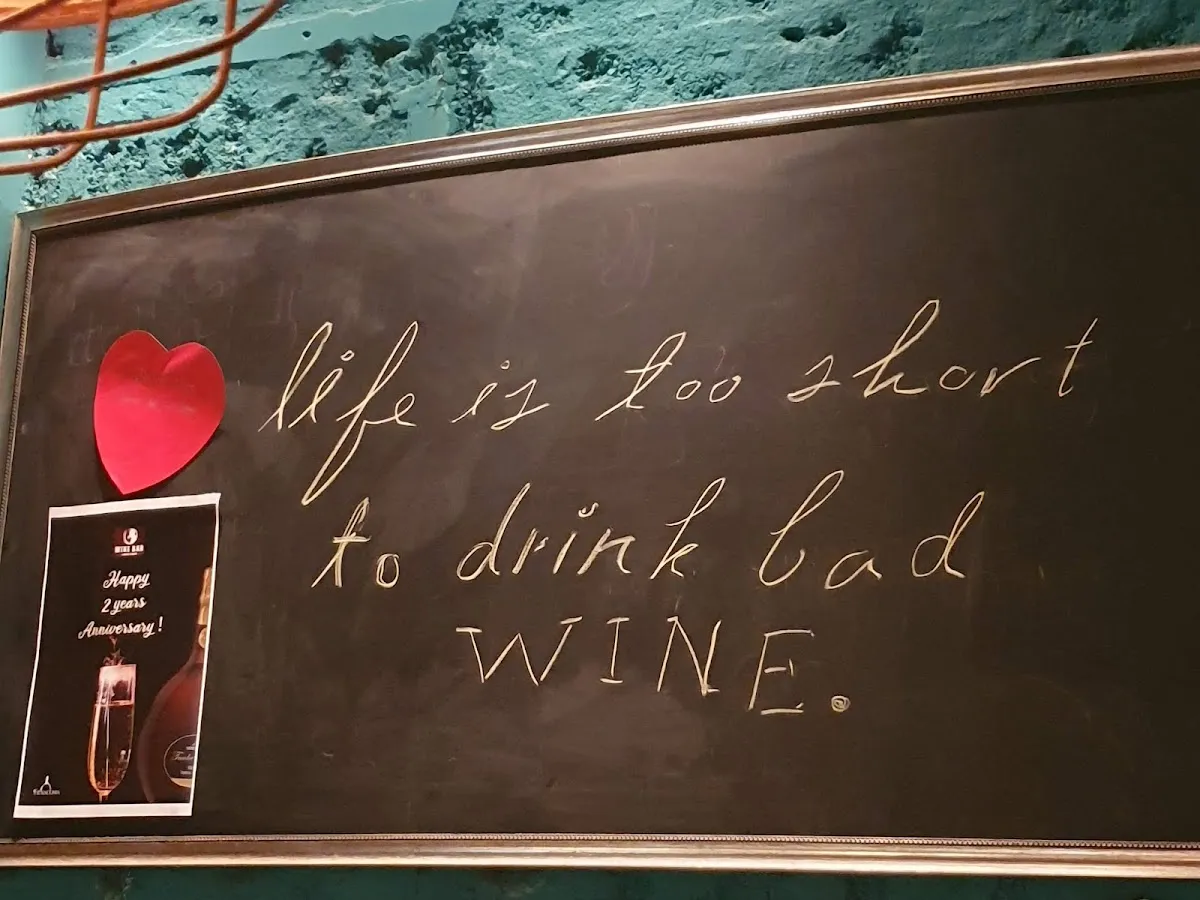 life is too short
to drink bad
WINE.
WINE BAR
Happy
2 years
Anniversary!